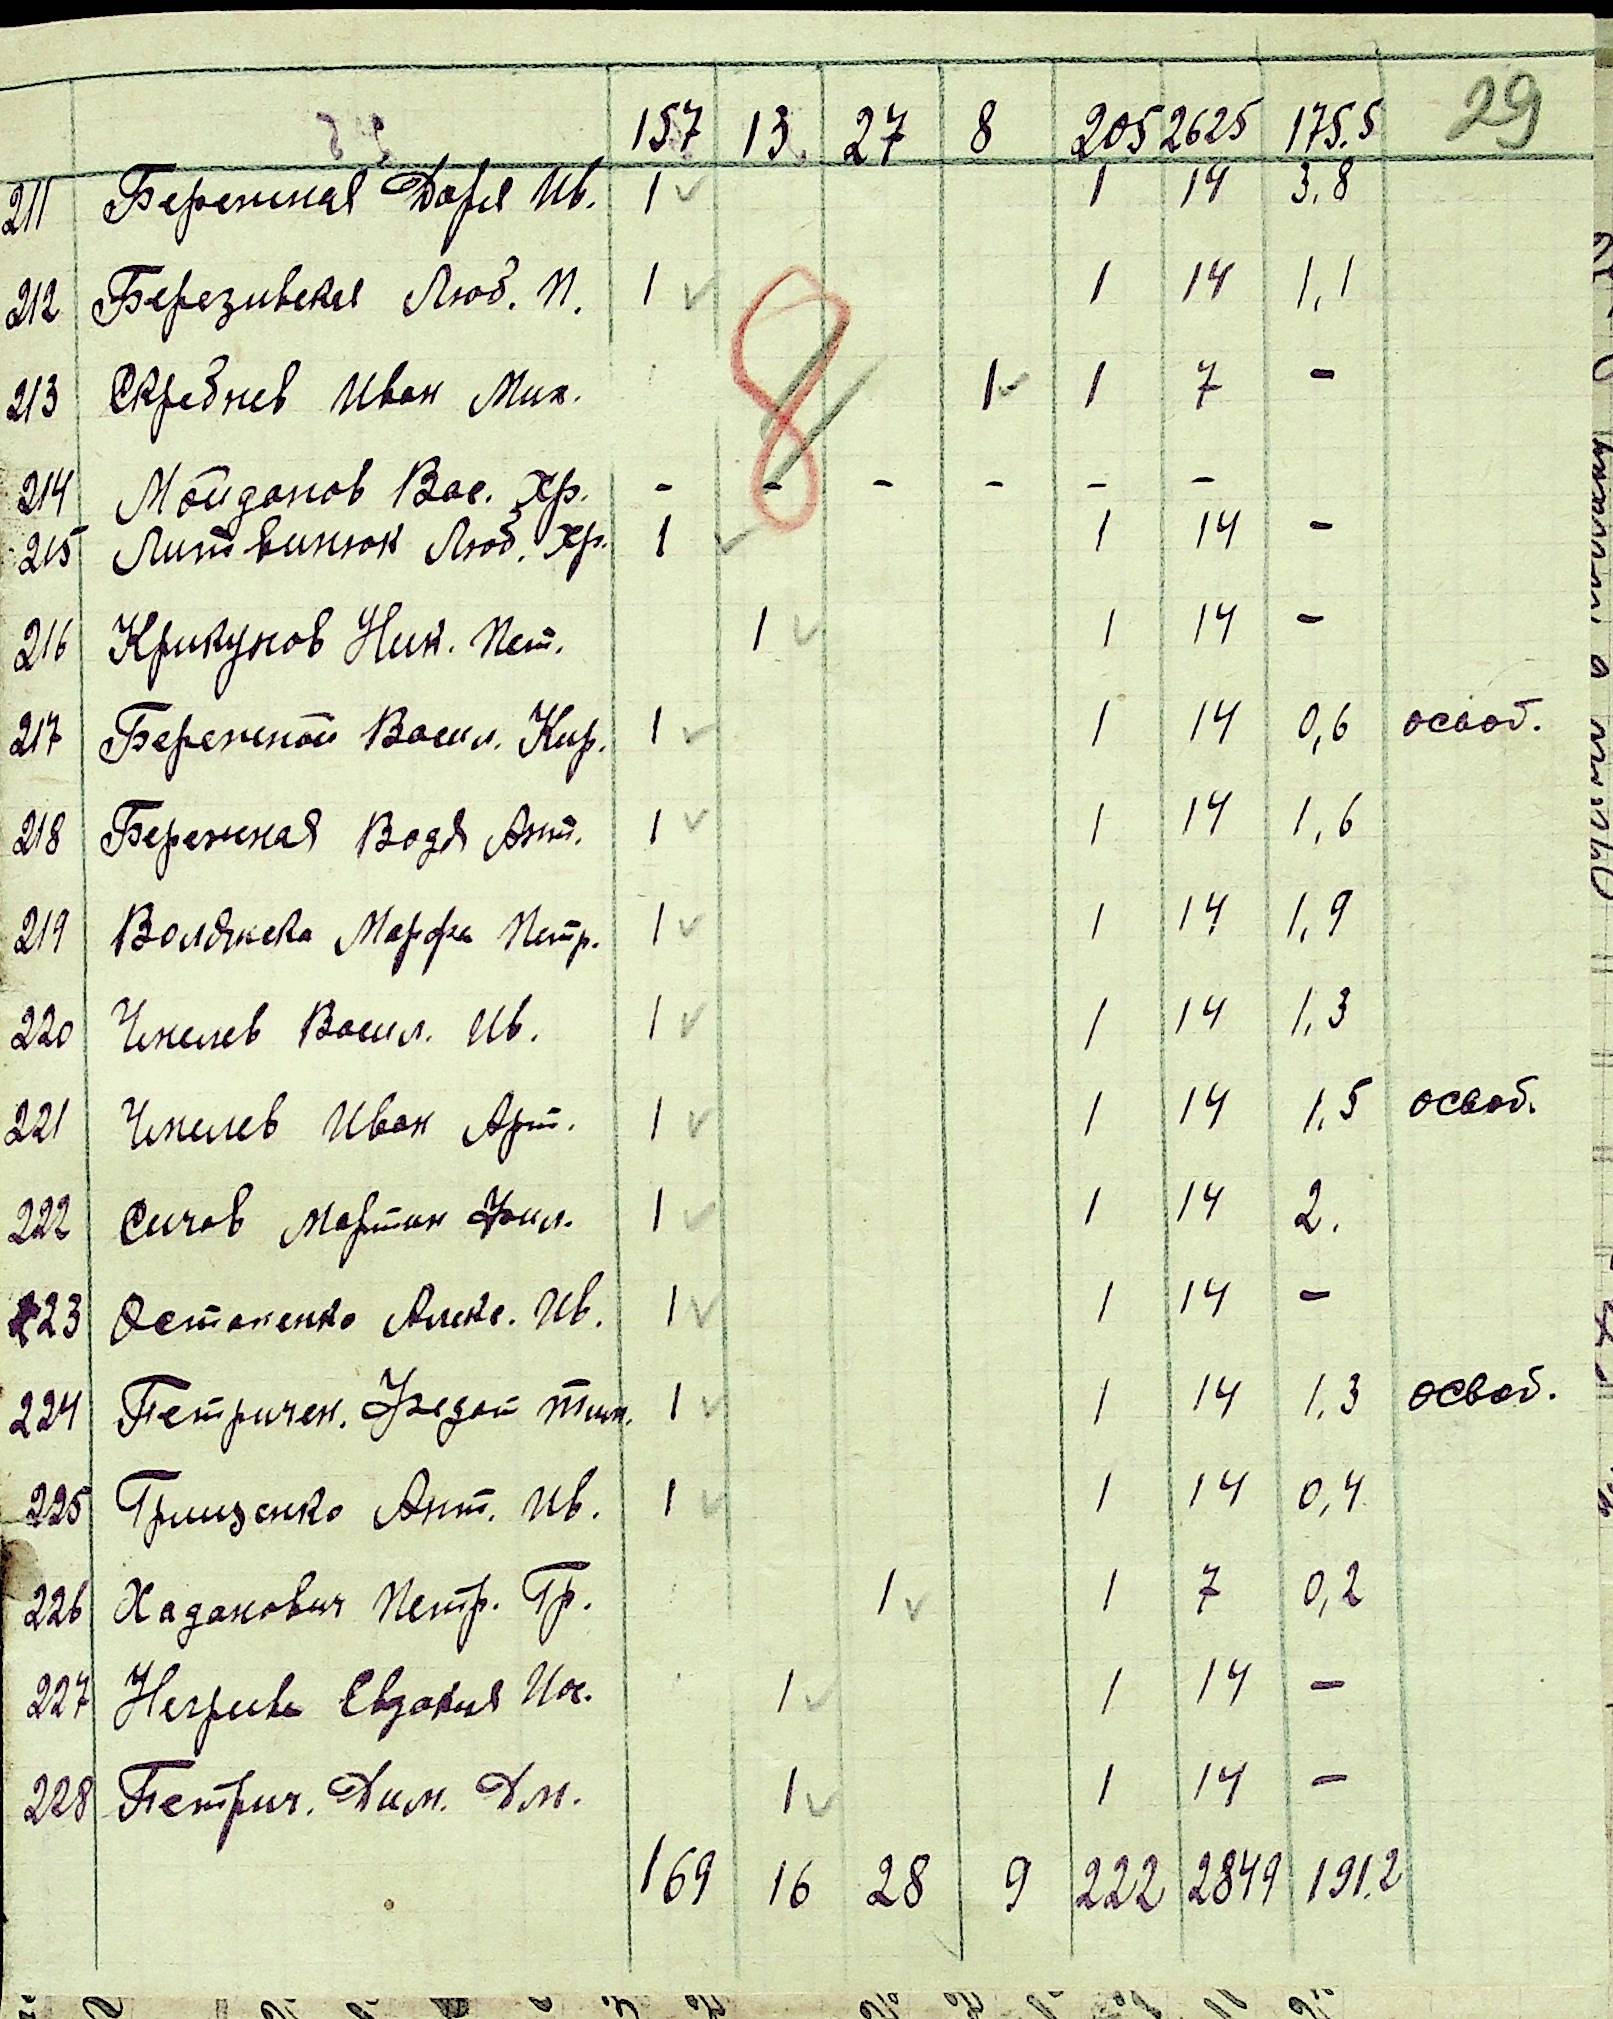 29
157 13 27 8 205 2625 175.5
211 Бережная Даря Ив. 1 1 14 3,8
212 Березивская Люб. П. 1 1 14 1,1
213 Скребнев Иван Мих. 1 1 7 -
8
214 Мойданов Вас. Хр. - - - - - -
215 Литвинюк Люб. Хр. 1 1 14 -
216 Крикунов Ник. Пет. 1 1 14 -
217 Бережной Васил. Кир. 1 1 14 0,6 освоб.
218 Бережная Вадя Ант. 1 1 14 1,6
219 Марфа Петр. 1 1 14 1,9
220 Чмелев Васил. Ив. 1 1 14 1,3
221 Чмелев Иван Арт. 1 1 14 1,5 освоб.
222 Сичов Мартин Фил. 1 1 14 2.
223 Остапенко Алекс. Ив. 1 1 14 -
224 Петричен. Федот Тим. 1 1 14 1,3 освоб.
225 Грищенко Ант. Ив. 1 1 14 0,4
226 Хаданович Петр. Гр. 1 1 7 0,2
227 Негрива Евдокия Ис. 1 1 14 -
228 Петрич. Дим. Дм. 1 1 14 -
169 16 28 9 222 2849 191.2